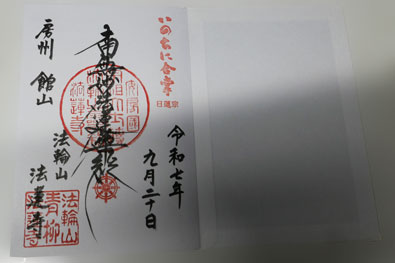 いのちに合掌
日蓮宗
令和七年
九月二十日
南無妙法蓮華経
房州 館山
法輪山
法蓮寺
法輪山
青柳